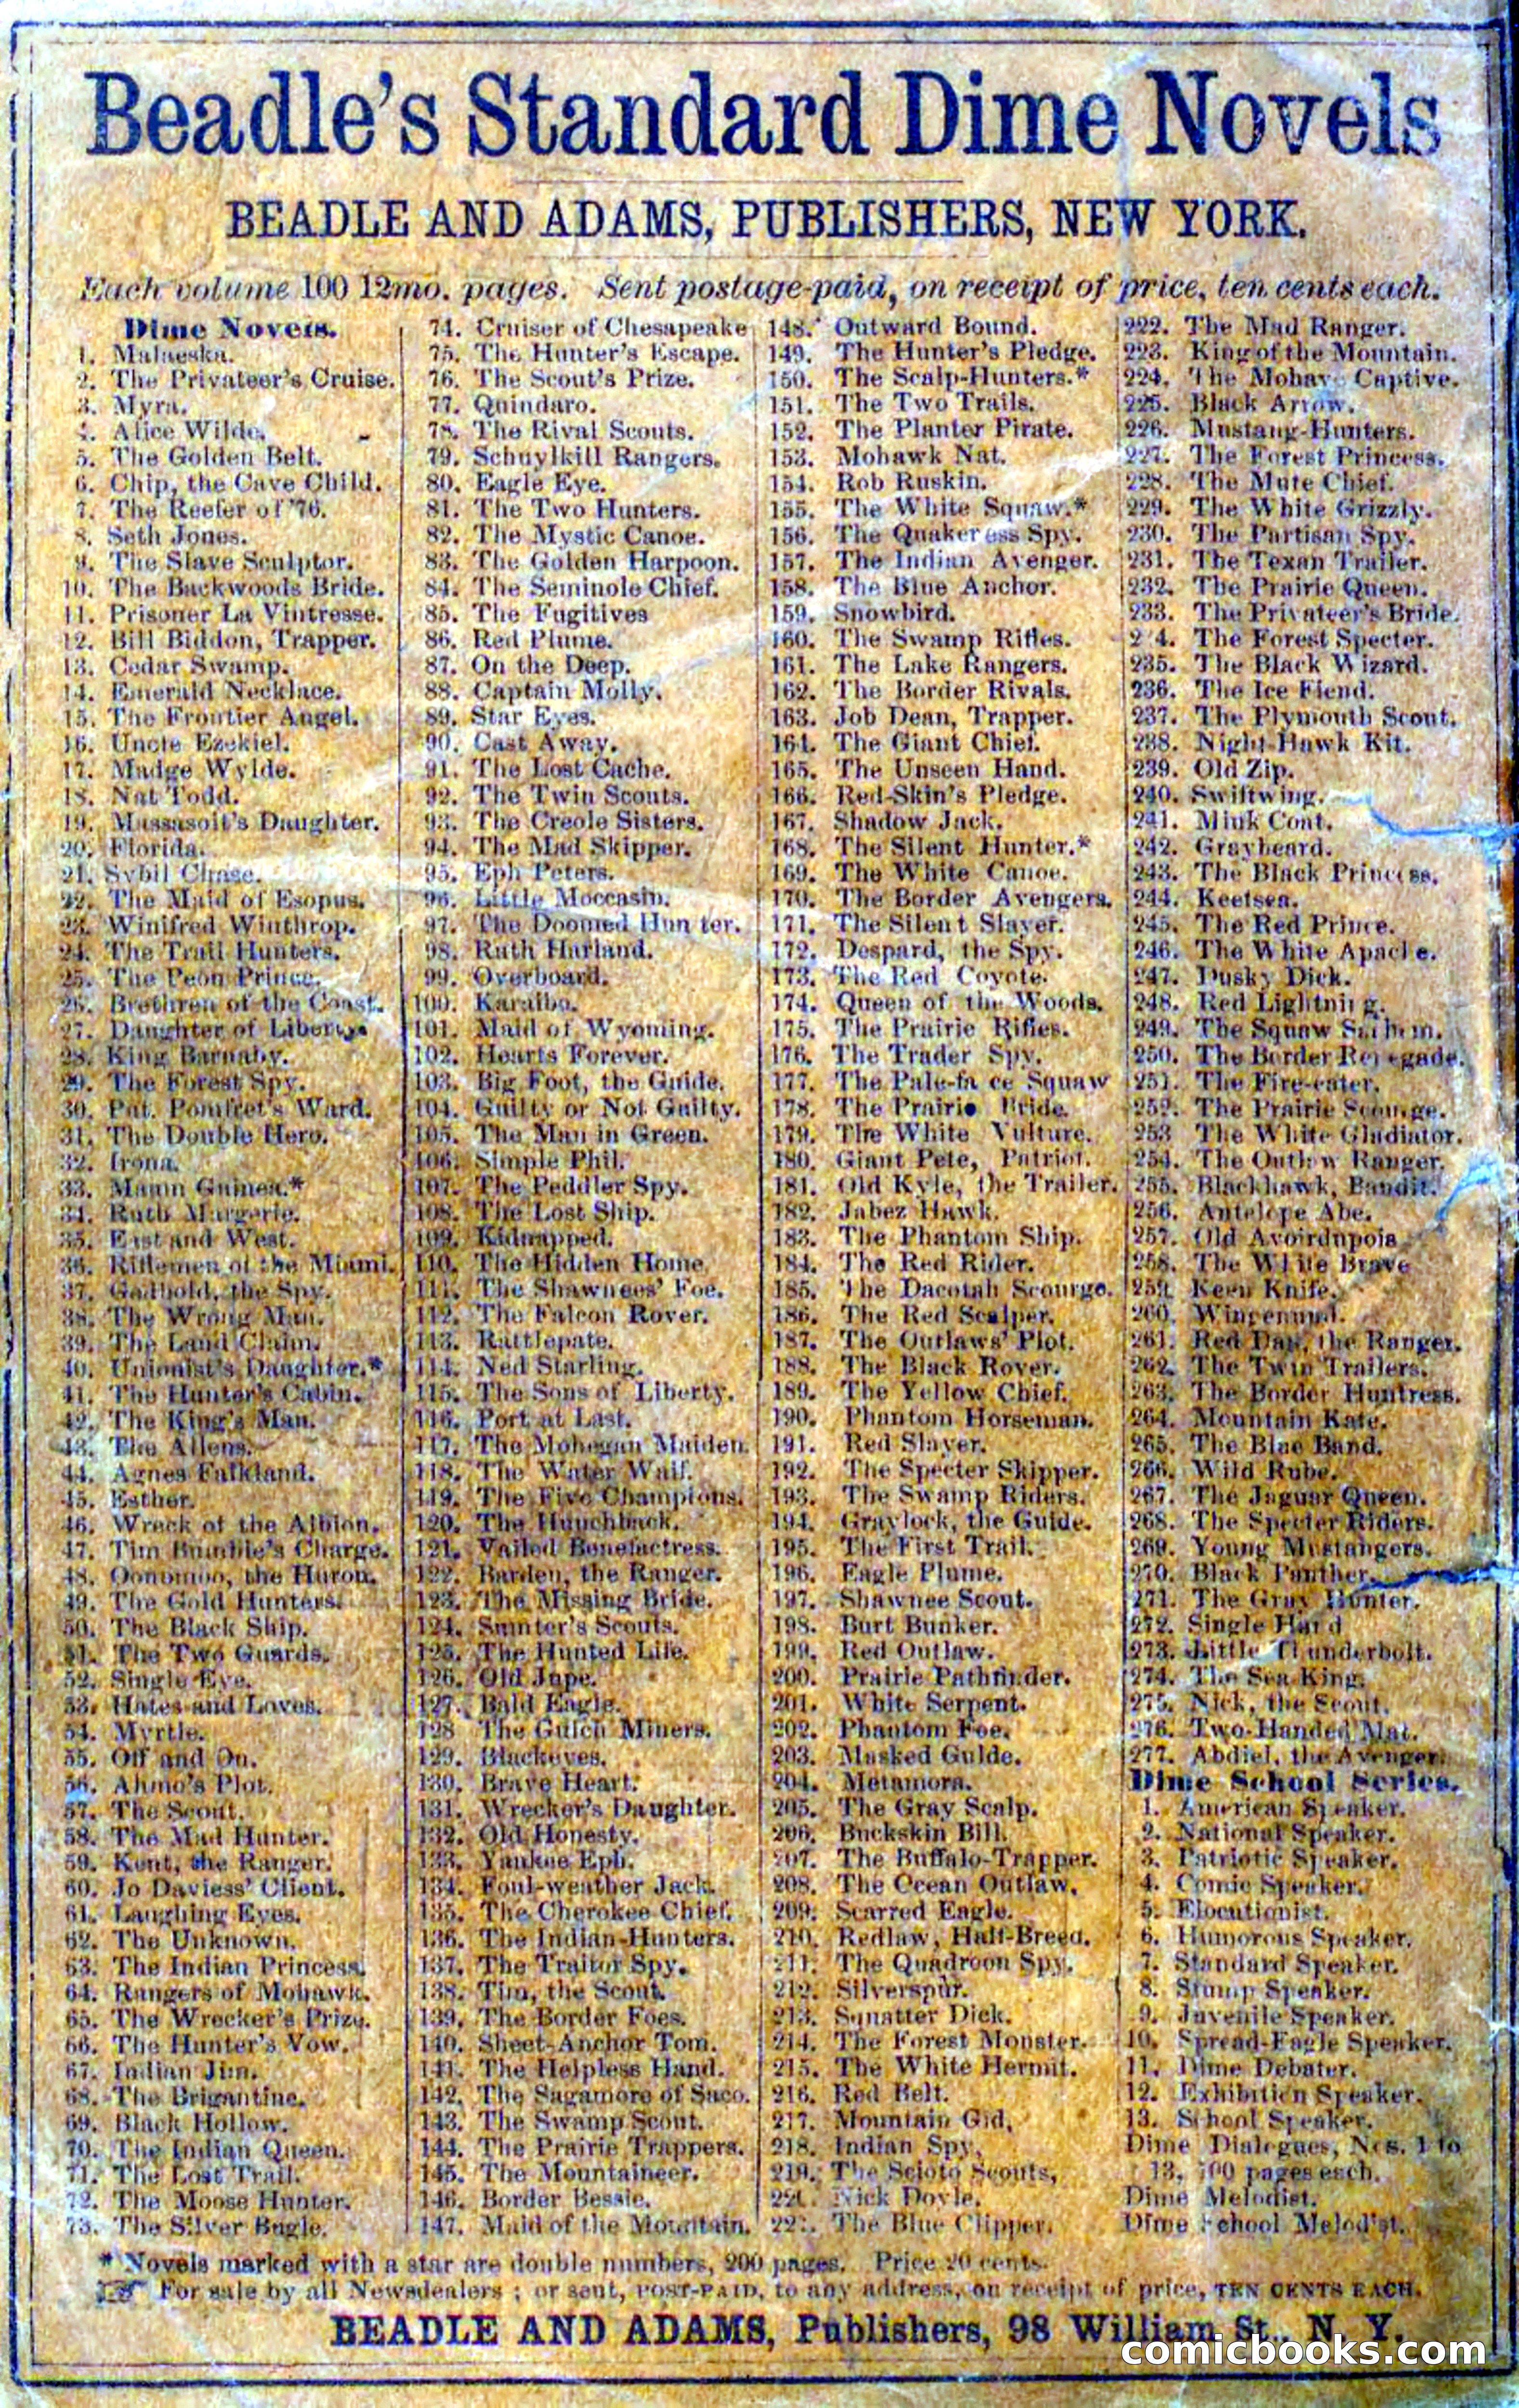 Beadle's Standard Dime Novels
BEADLE AND ADAMS, PUBLISHERS, NEW YORK.
Each volume 100 12mo. pages. Sent postage-paid, on receipt of price, ten cents each.
Dime Novels.
1. Malaeska.
2. The Privateer's Cruise.
3. Myra.
4. Alice Wilde.
5. The Golden Belt.
6. Chip, the Cave Child.
7. The Reefer of '76.
8. Seth Jones.
9. The Slave Sculptor.
10. The Backwoods Bride.
11. Prisoner La Vintresse.
12. Bill Biddon, Trapper.
13. Cedar Swamp.
14. Emerald Necklace.
15. The Frontier Angel.
16. Uncle Ezekiel.
17. Madge Wylde.
18. Nat Todd.
19. Massasoit's Daughter.
20. Florida.
21. Sybil Chase.
22. The Maid of Esopus.
23. Winifred Winthrop.
24. The Trail Hunters.
25. The Peon Prince.
26. Brethren of the Coast.
27. Daughter of Liberty.
28. King Barnaby.
29. The Forest Spy.
30. Put. Pomfret's Ward.
31. The Double Hero.
32. Irona.
33. Maum Guinea.*
34. Ruth Margerie.
35. East and West.
36. Riflemen of the Miami.
37. Godbold, the Spy.
38. The Wrong Man.
39. The Land Claim.
40. Unionist's Daughter.*
41. The Hunter's Cabin.
42. The King's Man.
43. The Allens.
44. Agnes Falkland.
45. Esther.
46. Wreck of the Albion.
47. Tim Bumble's Charge.
48. Oonomoo, the Huron.
49. The Gold Hunters.
50. The Black Ship.
51. The Two Guards.
52. Single Eye.
53. Hates and Loves.
54. Myrtle.
55. Off and On.
56. Ahmo's Plot.
57. The Scout.
58. The Mad Hunter.
59. Kent, the Ranger.
60. Jo Daviess' Client.
61. Laughing Eyes.
62. The Unknown.
63. The Indian Princess.
64. Rangers of Mohawk.
65. The Wrecker's Prize.
66. The Hunter's Vow.
67. Indian Jim.
68. The Brigantine.
69. Black Hollow.
70. The Indian Queen.
71. The Lost Trail.
72. The Moose Hunter.
73. The Silver Bugle.
74. Cruiser of Chesapeake
75. The Hunter's Escape.
76. The Scout's Prize.
77. Quindaro.
78. The Rival Scouts.
79. Schuylkill Rangers.
80. Eagle Eye.
81. The Two Hunters.
82. The Mystic Canoe.
83. The Golden Harpoon.
84. The Seminole Chief.
85. The Fugitives
86. Red Plume.
87. On the Deep.
88. Captain Molly.
89. Star Eyes.
90. Cast Away.
91. The Lost Cache.
92. The Twin Scouts.
93. The Creole Sisters.
94. The Mad Skipper.
95. Eph Peters.
96. Little Moccasin.
97. The Doomed Hunter.
98. Ruth Harland.
99. Overboard.
100. Karaibo.
101. Maid of Wyoming.
102. Hearts Forever.
103. Big Foot, the Guide.
104. Guilty or Not Guilty.
105. The Man in Green.
106. Simple Phil.
107. The Peddler Spy.
108. The Lost Ship.
109. Kidnapped.
110. The Hidden Home
111. The Shawnees' Foe.
112. The Falcon Rover.
113. Rattlepate.
114. Ned Starling.
115. The Sons of Liberty.
116. Port at Last.
117. The Mohegan Maiden.
118. The Water Waif.
119. The Five Champions.
120. The Hunchback.
121. Vailed Benefactress.
122. Barden, the Ranger.
123. The Missing Bride.
124. Sumter's Scouts.
125. The Hunted Life.
126. Old Jupe.
127. Bald Eagle.
128 The Gulch Miners.
129. Blackeyes.
130. Brave Heart.
131. Wrecker's Daughter.
132. Old Honesty.
133. Yankee Eph.
134. Foul-weather Jack.
135. The Cherokee Chief.
136. The Indian-Hunters.
137. The Traitor Spy.
138. Tim, the Scout.
139. The Border Foes.
140. Sheet-Anchor Tom.
141. The Helpless Hand.
142. The Sagamore of Saco.
143. The Swamp Scout.
144. The Prairie Trappers.
145. The Mountaineer.
146. Border Bessie.
147. Maid of the Mountain.
148. Outward Bound.
149. The Hunter's Pledge.
150. The Scalp-Hunters.*
151. The Two Trails.
152. The Planter Pirate.
153. Mohawk Nat.
154. Rob Ruskin.
155. The White Squaw.*
156. The Quakeress Spy.
157. The Indian Avenger.
158. The Blue Anchor.
159. Snowbird.
160. The Swamp Rifles.
161. The Lake Rangers.
162. The Border Rivals.
163. Job Dean, Trapper.
164. The Giant Chief.
165. The Unseen Hand.
166. Red-Skin's Pledge.
167. Shadow Jack.
168. The Silent Hunter.*
169. The White Canoe.
170. The Border Avengers.
171. The Silent Slayer.
172. Despard, the Spy.
173. The Red Coyote.
174. Queen of the Woods.
175. The Prairie Rifles.
176. The Trader Spy.
177. The Pale-face Squaw
178. The Prairie Bride.
179. The White Vulture.
180. Giant Pete, Patriot.
181. Old Kyle, the Trailer.
182. Jabez Hawk.
183. The Phantom Ship.
184. The Red Rider.
185. The Dacotah Scourge.
186. The Red Scalper.
187. The Outlaws' Plot.
188. The Black Rover.
189. The Yellow Chief.
190. Phantom Horseman.
191. Red Slayer.
192. The Specter Skipper.
193. The Swamp Riders.
194. Graylock, the Guide.
195. The First Trail.
196. Eagle Plume.
197. Shawnee Scout.
198. Burt Bunker.
199. Red Outlaw.
200. Prairie Pathfinder.
201. White Serpent.
202. Phantom Foe.
203. Masked Guide.
204. Metamora.
205. The Gray Scalp.
206. Buckskin Bill.
207. The Buffalo-Trapper.
208. The Ocean Outlaw.
209. Scarred Eagle.
210. Redlaw, Half-Breed.
211. The Quadroon Spy.
212. Silverspur.
213. Squatter Dick.
214. The Forest Monster.
215. The White Hermit.
216. Red Belt.
217. Mountain Gid,
218. Indian Spy,
219. The Scioto Scouts,
220. Nick Doyle.
221. The Blue Clipper.
222. The Mad Ranger.
223. King of the Mountain.
224. The Mohave Captive.
225. Black Arrow.
226. Mustang-Hunters.
227. The Forest Princess.
228. The Mute Chief.
229. The White Grizzly.
230. The Partisan Spy.
231. The Texan Trailer.
232. The Prairie Queen.
233. The Privateer's Bride.
2 4. The Forest Specter.
235. The Black Wizard.
236. The Ice Fiend.
237. The Plymouth Scout.
238. Night-Hawk Kit.
239. Old Zip.
240. Swiftwing.
241. Mink Coat.
242. Graybeard.
243. The Black Princess.
244. Keetsea.
245. The Red Prince.
246. The White Apache.
247. Dusky Dick.
248. Red Lightning.
249. The Squaw Sachem.
250. The Border Renegade.
251. The Fire-eater.
252. The Prairie Scourge.
253 The White Gladiator.
254. The Outlaw Ranger.
255. Blackhawk, Bandit.
256. Antelope Abe.
257. Old Avoirdupois
258. The White Brave
259. Keen Knife.
260. Wingenund.
261. Red Dan, the Ranger.
262. The Twin Trailers.
263. The Border Huntress.
264. Mountain Kate.
265. The Blue Band.
266. Wild Rube.
267. The Jaguar Queen.
268. The Specter Riders.
269. Young Mustangers.
270. Black Panther.
271. The Gray Hunter.
272. Single Hand
273. Little Thunderbolt.
274. The Sea King.
275. Nick, the Scout.
276. Two-Handed Mat.
277. Abdiel, the Avenger.
Dime School Series.
1. American Speaker.
2. National Speaker.
3. Patriotic Speaker.
4. Comic Speaker.
5. Elocutionist.
6. Humorous Speaker.
7. Standard Speaker.
8. Stump Speaker.
9. Juvenile Speaker.
10. Spread-Eagle Speaker.
11. Dime Debater.
12. Exhibition Speaker.
13. School Speaker.
Dime Dialogues, Nos. 1 to
13, 100 pages each.
Dime Melodist.
Dime School Melodist.
* Novels marked with a star are double numbers, 200 pages. Price 20 cents.
For sale by all Newsdealers ; or sent, POST-PAID, to any address, on receipt of price, TEN CENTS EACH.
BEADLE AND ADAMS, Publishers, 98 William St., N. Y.
comicbooks.com